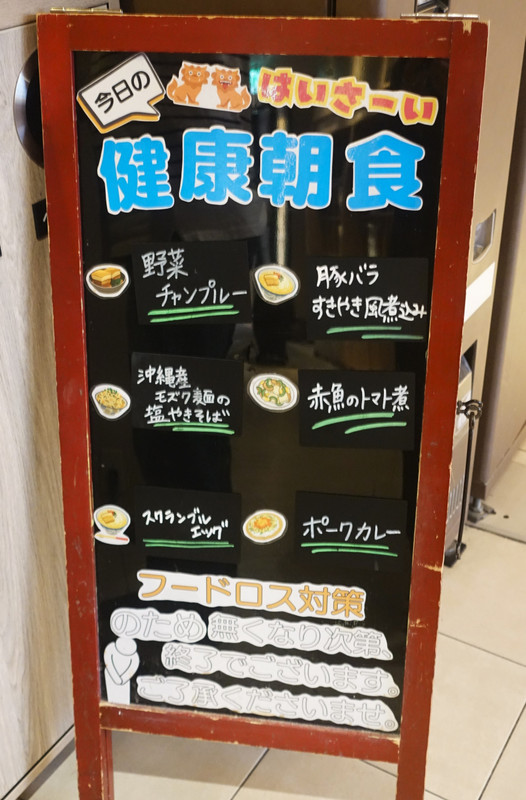 今日の
はいさーい
健康朝食
野菜
チャンプルー
豚バラ
すきやき風煮込み
沖縄産
モズク麺の
塩やきそば
赤魚のトマト煮
スクランブル
エッグ
ポークカレー
フードロス対策
のため無くなり次第、
終了でございます。
ご了承くださいませ。